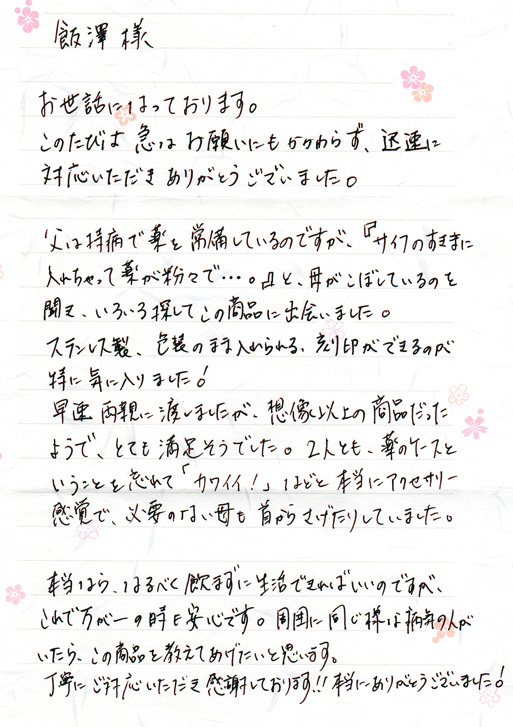 飯澤 様
お世話になっております。
このたびは 急な お願いにもかかわらず、迅速に
対応いただき ありがとうございました。
父は持病で薬を常備しているのですが、『サイフのすきまに
入れちゃって薬が粉々で…。』と、母がこぼしているのを
聞き、いろいろ探してこの商品に出会いました。
ステンレス製、包装のまま入れられる、刻印ができるのが
特に気に入りました!
早速 両親に渡しましたが、想像以上の商品だった
ようで、とても満足そうでした。2人とも、薬のケースと
いうことを忘れて「カワイイ!」などと本当にアクセサリー
感覚で、必要のない母も首からさげたりしていました。
本当なら、なるべく飲まずに生活できればいいのですが、
これで万が一の時も安心です。周囲に同じ様な病気の人が
いたら、この商品を教えてあげたいと思います。
丁寧にご対応いただき感謝しております!!本当にありがとうございました!